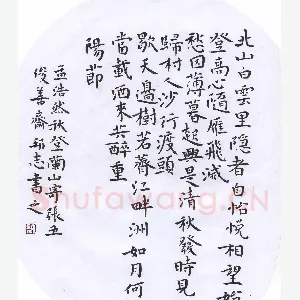 北山白雲里隱者自怡悅相望始
登高心隨雁飛滅
愁因薄暮起興是清秋發時見
歸村人沙行渡頭
歇天邊樹若薺江畔洲如月何
當載酒來共醉重
陽節
孟浩然秋登蘭山寄張五
俊善齋志書之
Shufawang.CN